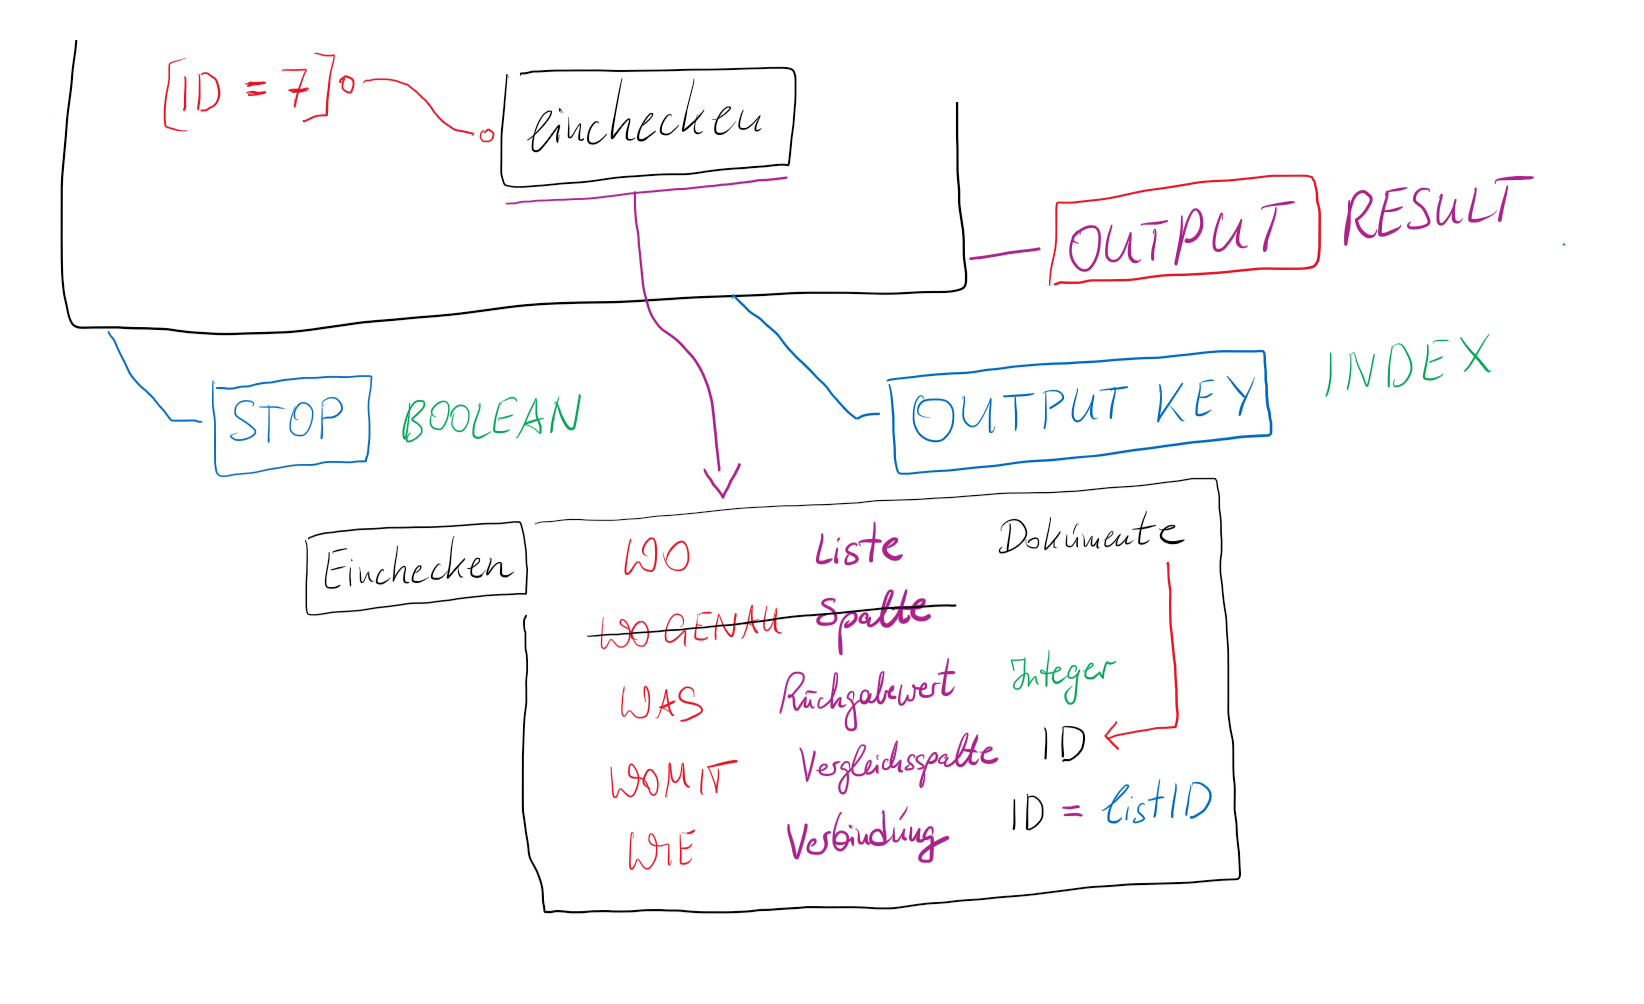 [ID = 7]
einchecken
OUTPUT RESULT
STOP BOOLEAN
OUTPUT KEY INDEX
Einchecken
WO Liste Dokumente
WO GENAU Spalte
WAS Rückgabewert Integer
WOMIT Vergleichsspalte ID
WIE Verbindung ID = listID